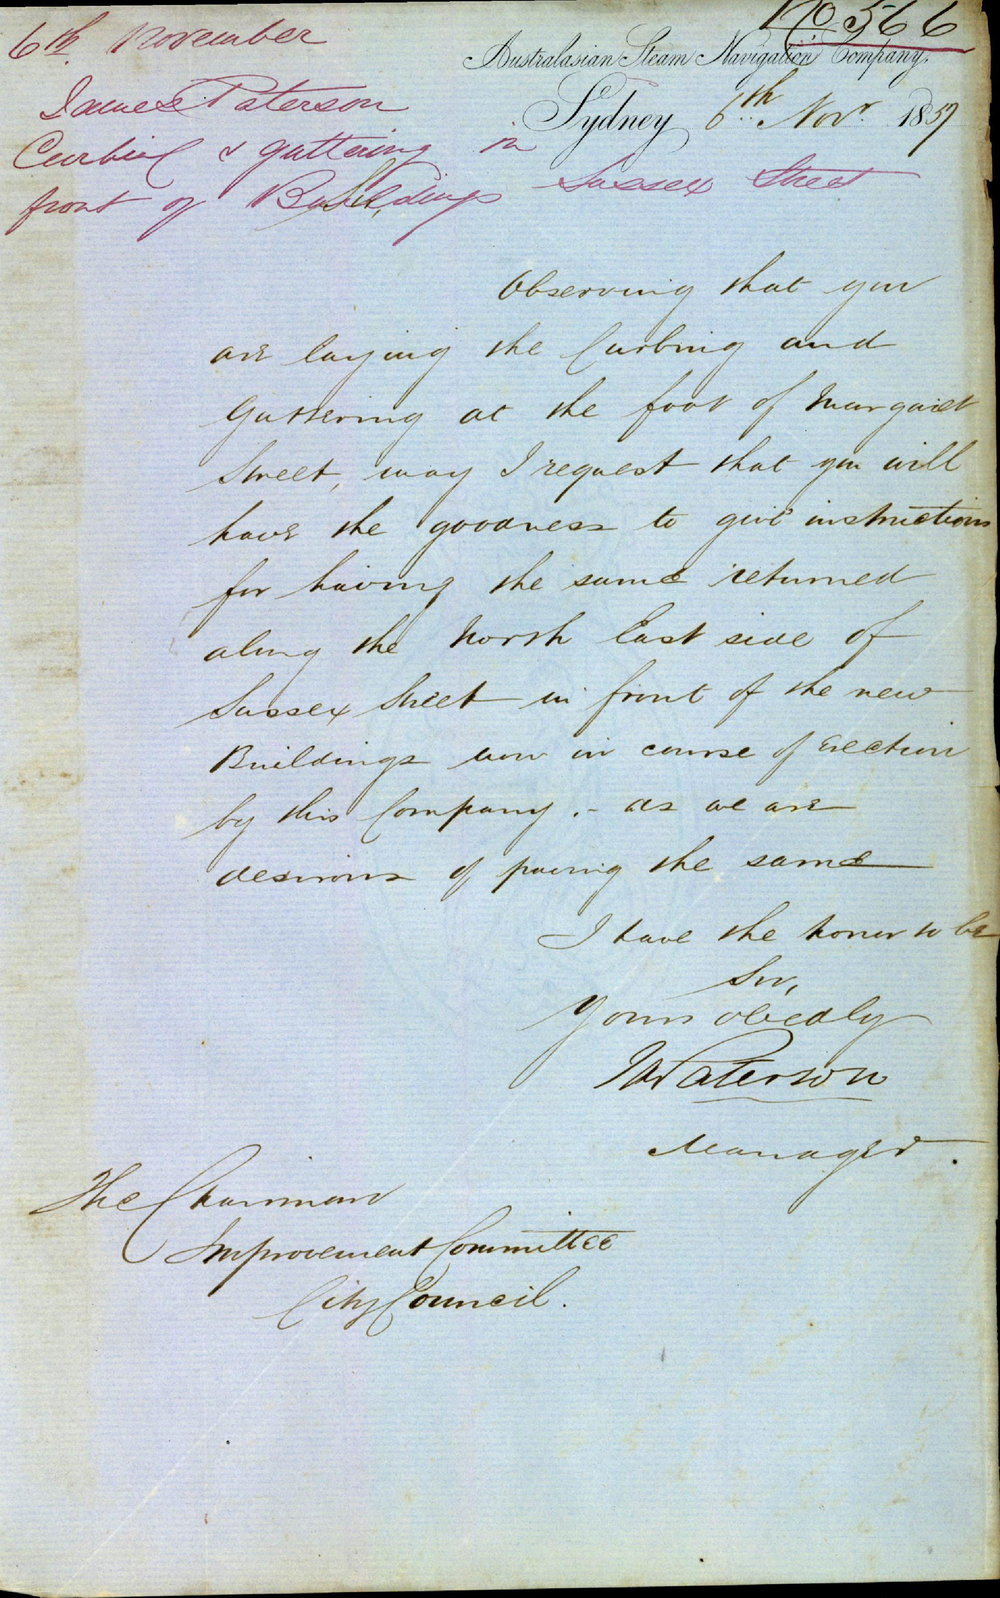 No 566
6th November
Australasian Steam Navigation Company,
Sydney 6th Novr. 1857
James Paterson
Curbing & guttering in
front of Buildings Sussex Street
Sir,
Observing that you
are laying the Curbing and
Guttering at the foot of Margaret
Street, may I request that you will
have the goodness to give instructions
for having the same returned
along the North East side of
Sussex Street in front of the new
Buildings now in course of Erection
by this Company. - as we are
desirous of paving the same
I have the honor to be
Sir,
Yours obedly
Paterson
Manager.
The Chairman
Improvement Committee
City Council.